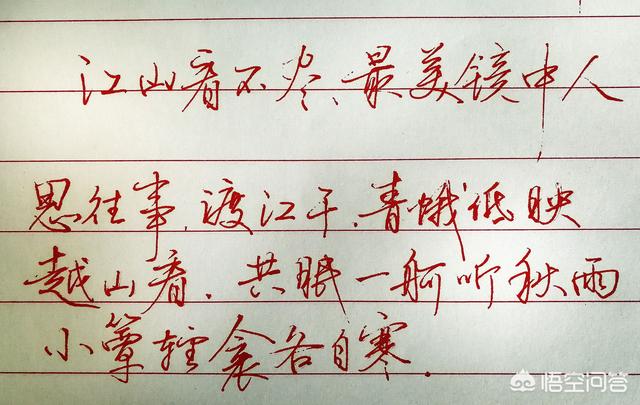 江山看不尽、最美镜中人
思往事，渡江干，青蛾低映
越山看．共眠一舸听秋雨
小簟轻衾各自寒．
悟空问答